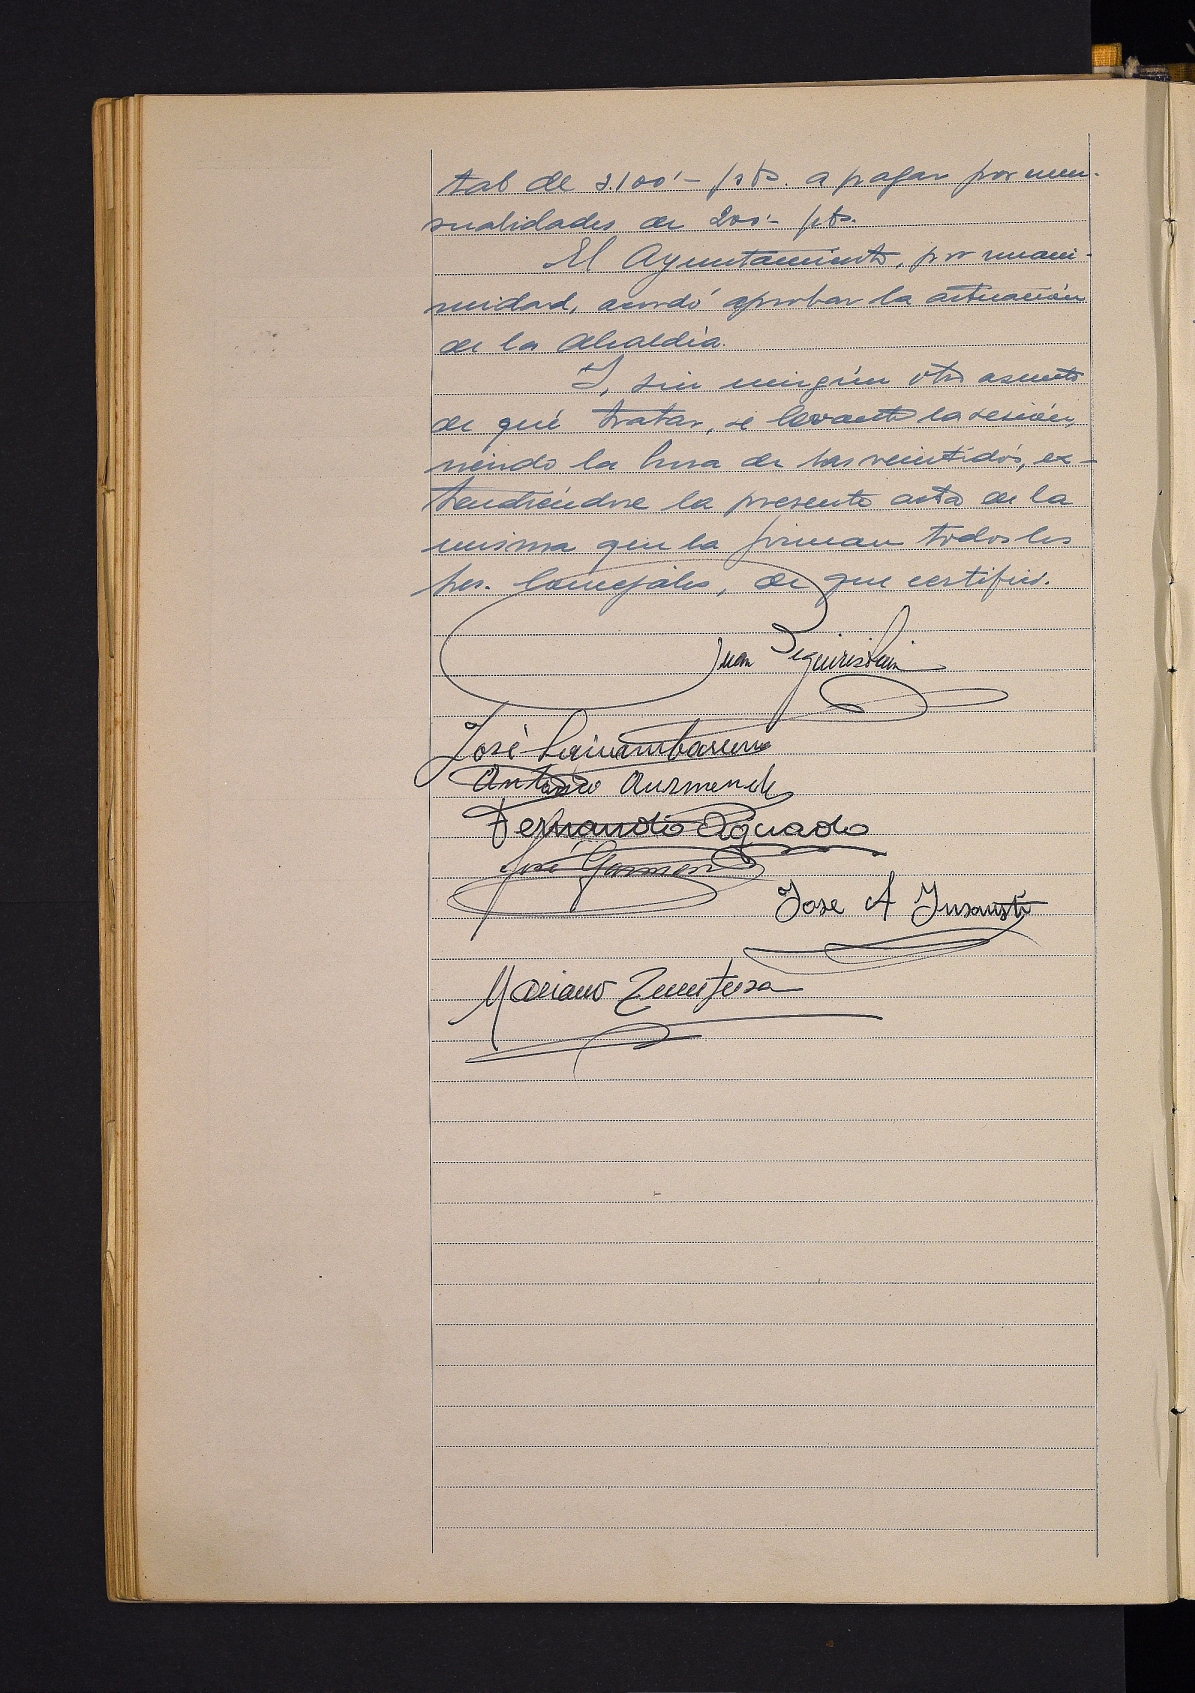 tal de 3.100'- pts. a pagar por men-
sualidades de 200'- pts.
El Ayuntamiento, por unani-
midad, acordó aprobar la actuación
de la Alcaldía.
Y, sin ningún otro asunto
de qué tratar, se levantó la sesión,
siendo la hora de las veintidós, ex-
tendiéndose la presente acta de la
misma que la firman todos los
Sres. Concejales, de que certifico.
Juan Eguiristain
José
Antonio Aurmendi
Fernando Aguado
José Garmen
Jose A Insausti
Mariano